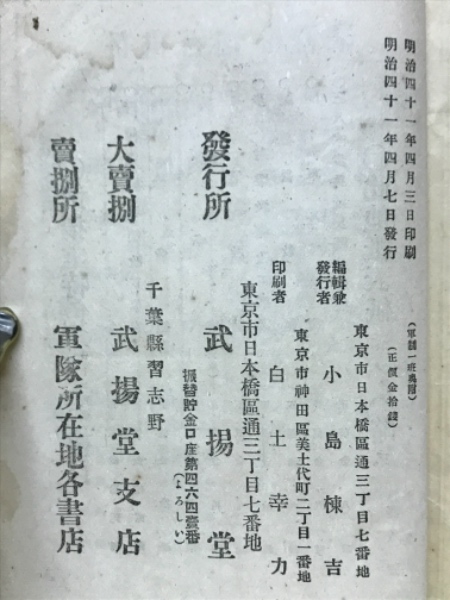 明治四十一年四月三日印刷
明治四十一年四月七日發行
(正價金拾錢)
東京市日本橋區通三丁目七番地
編輯兼
發行者 小島棟吉
東京市神田區美土代町二丁目一番地
印刷者 白土幸力
東京市日本橋區通三丁目七番地
發行所 武揚堂
振替貯金口座第四六四壹番
(よろしい)
千葉縣習志野
大賣捌 武揚堂支店
賣捌所 軍隊所在地各書店